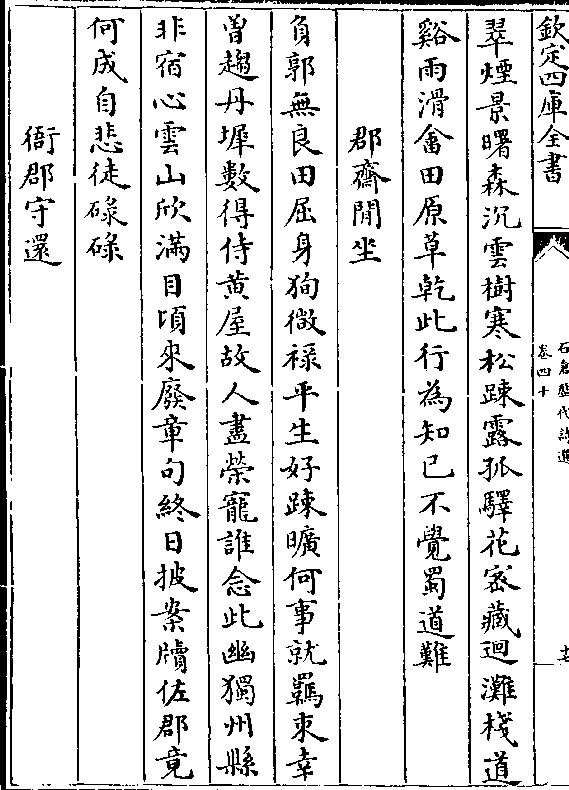 欽定四庫全書
石倉歷代詩選
卷四十
翠煙景曙森沉雲樹寒松踈露孤驛花宻藏迴灘棧道
谿雨滑畬田原草乾此行為知已不覺蜀道難
郡齋閒坐
負郭無良田屈身狥微禄平生好踈曠何事就羈束幸
曽趨丹墀數得侍黄屋故人盡榮寵誰念此幽獨州縣
非宿心雲山欣滿目頃來廢章句終日披案牘佐郡竟
何成自悲徒碌碌
衙郡守還